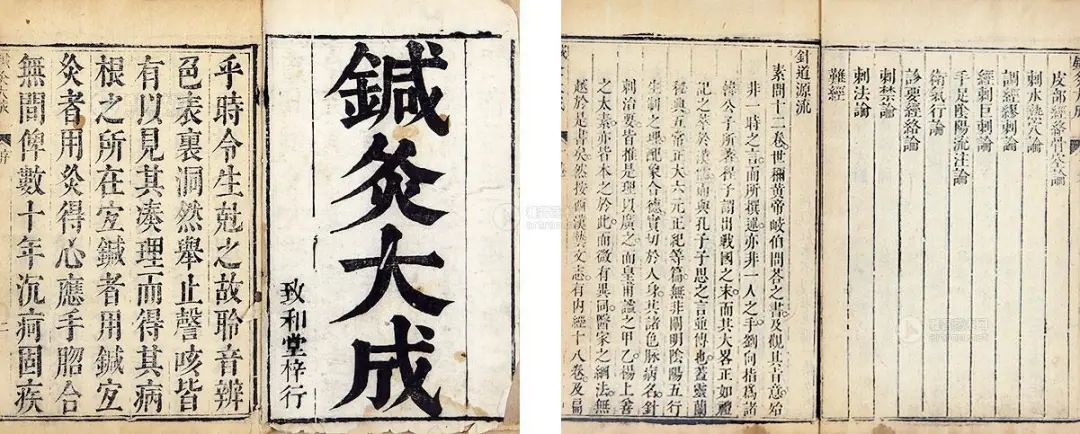 鍼灸大成
致和堂梓行
乎時令生尅之故聆音辨
色表裏洞然舉止謦咳皆
有以見其湊理而得其病
根之所在宐鍼者用鍼宐
灸者用灸得心應手脗合
無間俾數十年沉疴固疾
序
皮部經絡骨空論
刺水熱穴論
調經繆刺論
經刺巨刺論
手足陰陽流注論
衛氣行論
診要經絡論
刺禁論
刺法論
難經
針道源流
素問十二卷世稱黃帝岐伯問荅之書及觀其言意殆
非一時之言而所撰述亦非一人之手劉向指為諸
韓公子所著程子謂出戰國之末而其大畧正如禮
記之萃於漢儒而與孔子子思之言並傳也蓋靈蘭
秘典五帝正大六元正紀等篇無非闡明陰陽五行
生制之理配象合德實切於人身其諸色脉病名針
刺治要皆推是理以廣之而皇甫謐之甲乙楊上善
之太素亦皆本之於此而微有異同醫家之綱法無
越於是書矣然按西漢藝文志有内經十八卷及扁